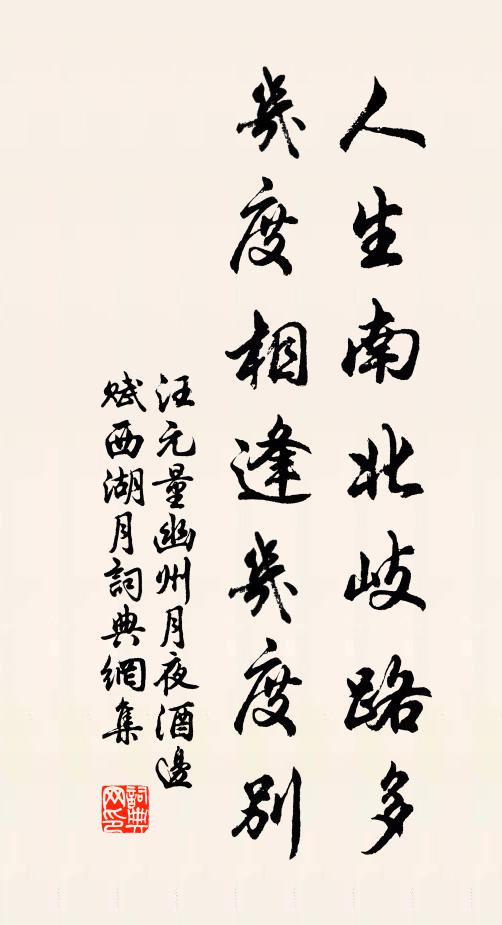 人生南北岐路多
幾度相逢幾度別
汪元量幽州月夜酒邊
賦西湖月詞典網集
詞典网印